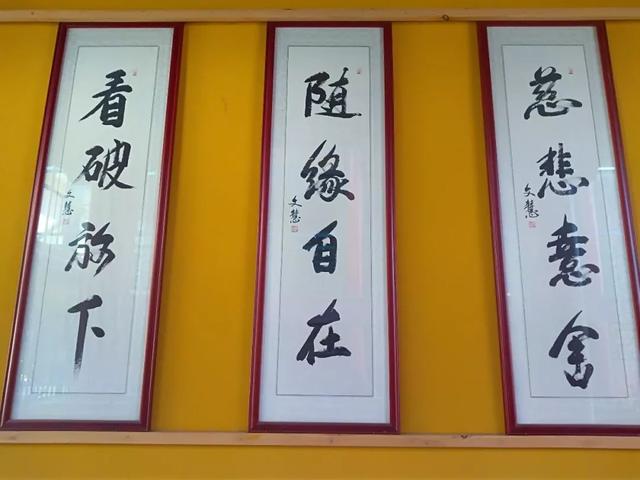 看破放下
文慧
随緣自在
文慧
慈悲憙舍
文慧